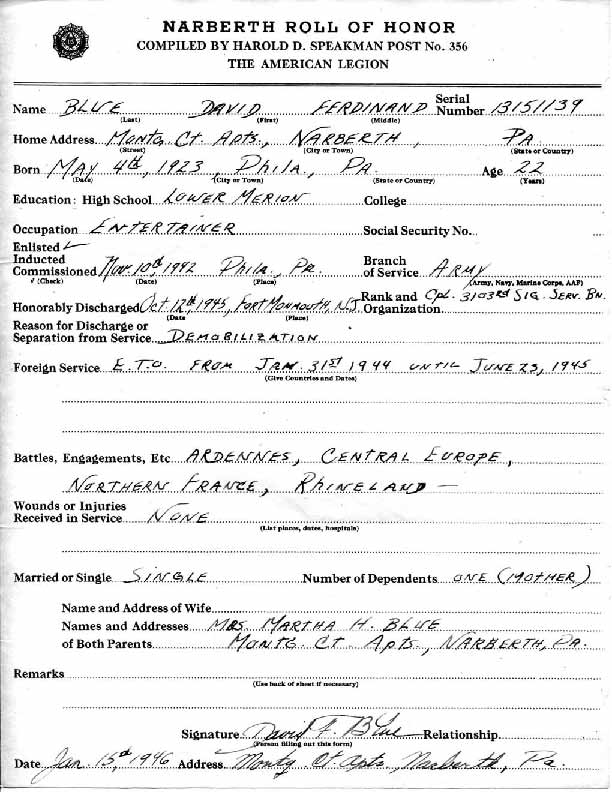 NARBERTH ROLL OF HONOR
COMPILED BY HAROLD D. SPEAKMAN POST No. 356
THE AMERICAN LEGION
Name BLUE DAVID FERDINAND Serial Number 13151139
(Last) (First) (Middle)
Home Address Montg. Ct. Apts., NARBERTH, PA
(Street) (City or Town) (State or Country)
Born MAY 4th, 1923, Phila., PA. Age 22
(Date) (City or Town) (State or Country) (Years)
Education: High School LOWER MERION College
Occupation ENTERTAINER Social Security No.
Enlisted ✓
Inducted
Commissioned Nov. 10th 1942 Phila., Pa. Branch of Service ARMY
# (Check) (Date) (Place) (Army, Navy, Marine Corps, AAF)
Honorably Discharged Oct 12th, 1945, FORT MONMOUTH, N.J. Rank and Organization CPL. 3103rd SIG. SERV. BN.
(Date (Place)
Reason for Discharge or
Separation from Service DEMOBILIZATION
Foreign Service E.T.O. FROM JAN. 31ST 1944 UNTIL JUNE 23, 1945
(Give Countries and Dates)
Battles, Engagements, Etc. ARDENNES, CENTRAL EUROPE,
NORTHERN FRANCE, RHINELAND —
Wounds or Injuries
Received in Service NONE
(List places, dates, hospitals)
Married or Single SINGLE Number of Dependents ONE (MOTHER)
Name and Address of Wife
Names and Addresses MRS. MARTHA H. BLUE
of Both Parents Montg. Ct. Apts., NARBERTH, PA.
Remarks
(Use back of sheet if necessary)
Signature David F. Blue Relationship
(Person filling out this form)
Date Jan 15th, 1946 Address Montg Ct Apts, Narberth, Pa.